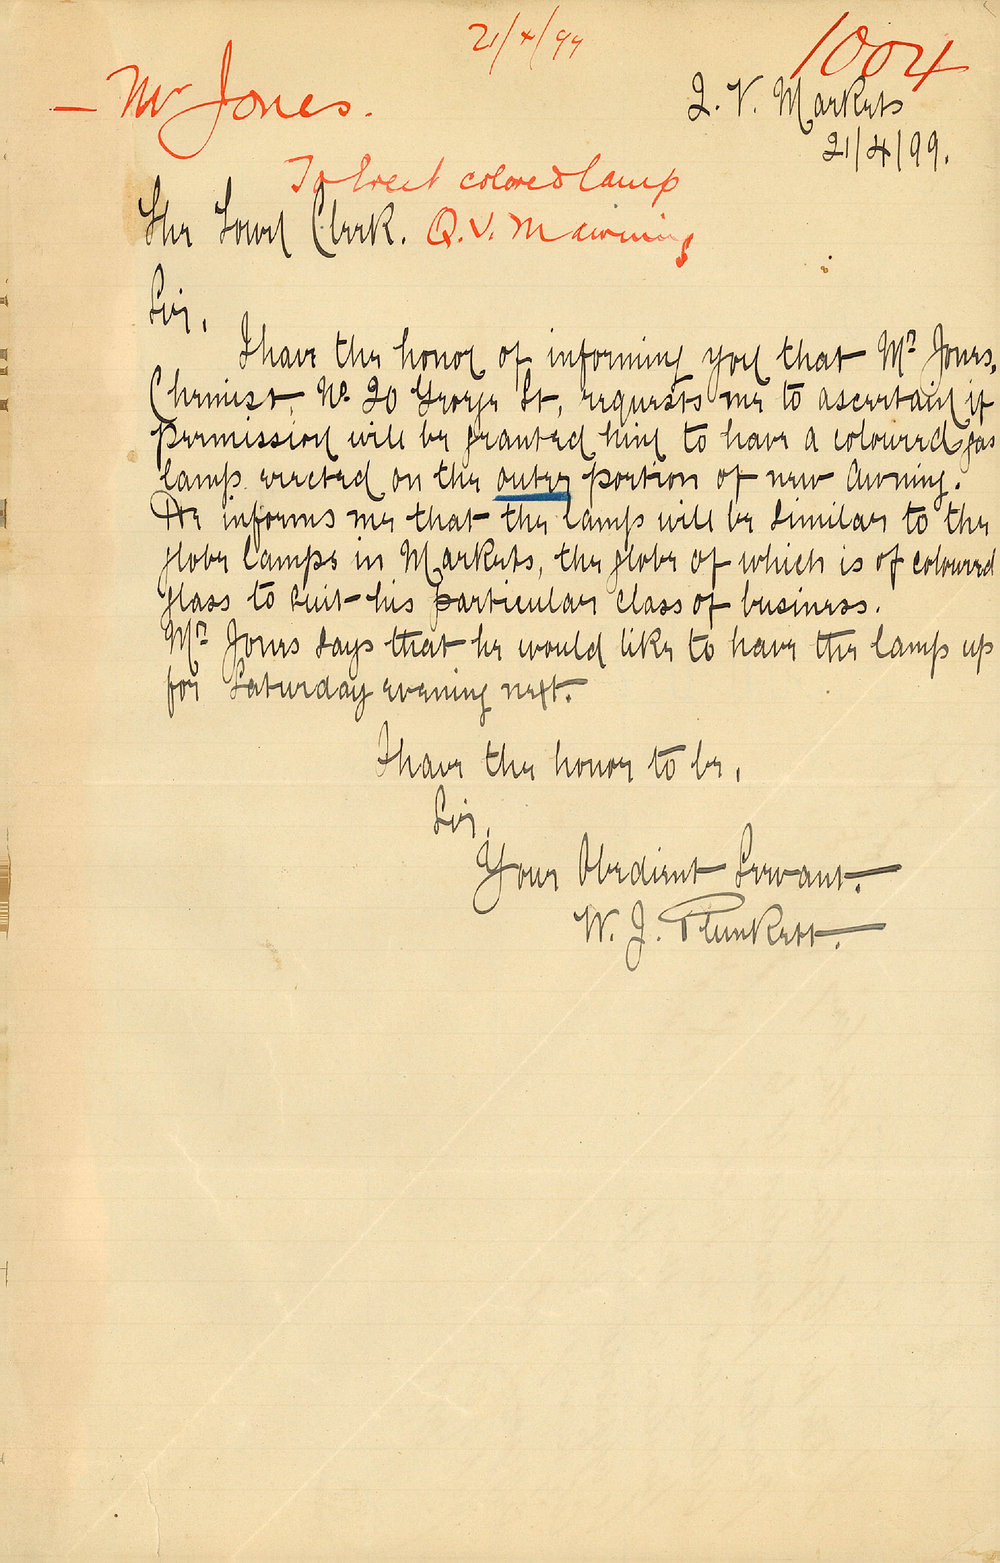 21/4/99
1004
— Mr Jones.
Q. V. Markets
21/4/99.
To Erect colored lamp
The Town Clerk. Q. V. M awning
Sir,
I have the honor of informing you that Mr Jones,
Chemist, No. 20 George St, requests me to ascertain if
permission will be granted him to have a coloured gas
lamp erected on the outer portion of new Awning.
He informs me that the lamp will be similar to the
globe lamps in Markets, the globe of which is of coloured
glass to suit his particular class of business.
Mr Jones says that he would like to have the lamp up
for Saturday evening next.
I have the honor to be,
Sir,
Your Obedient Servant.
W. J. Plunkett.